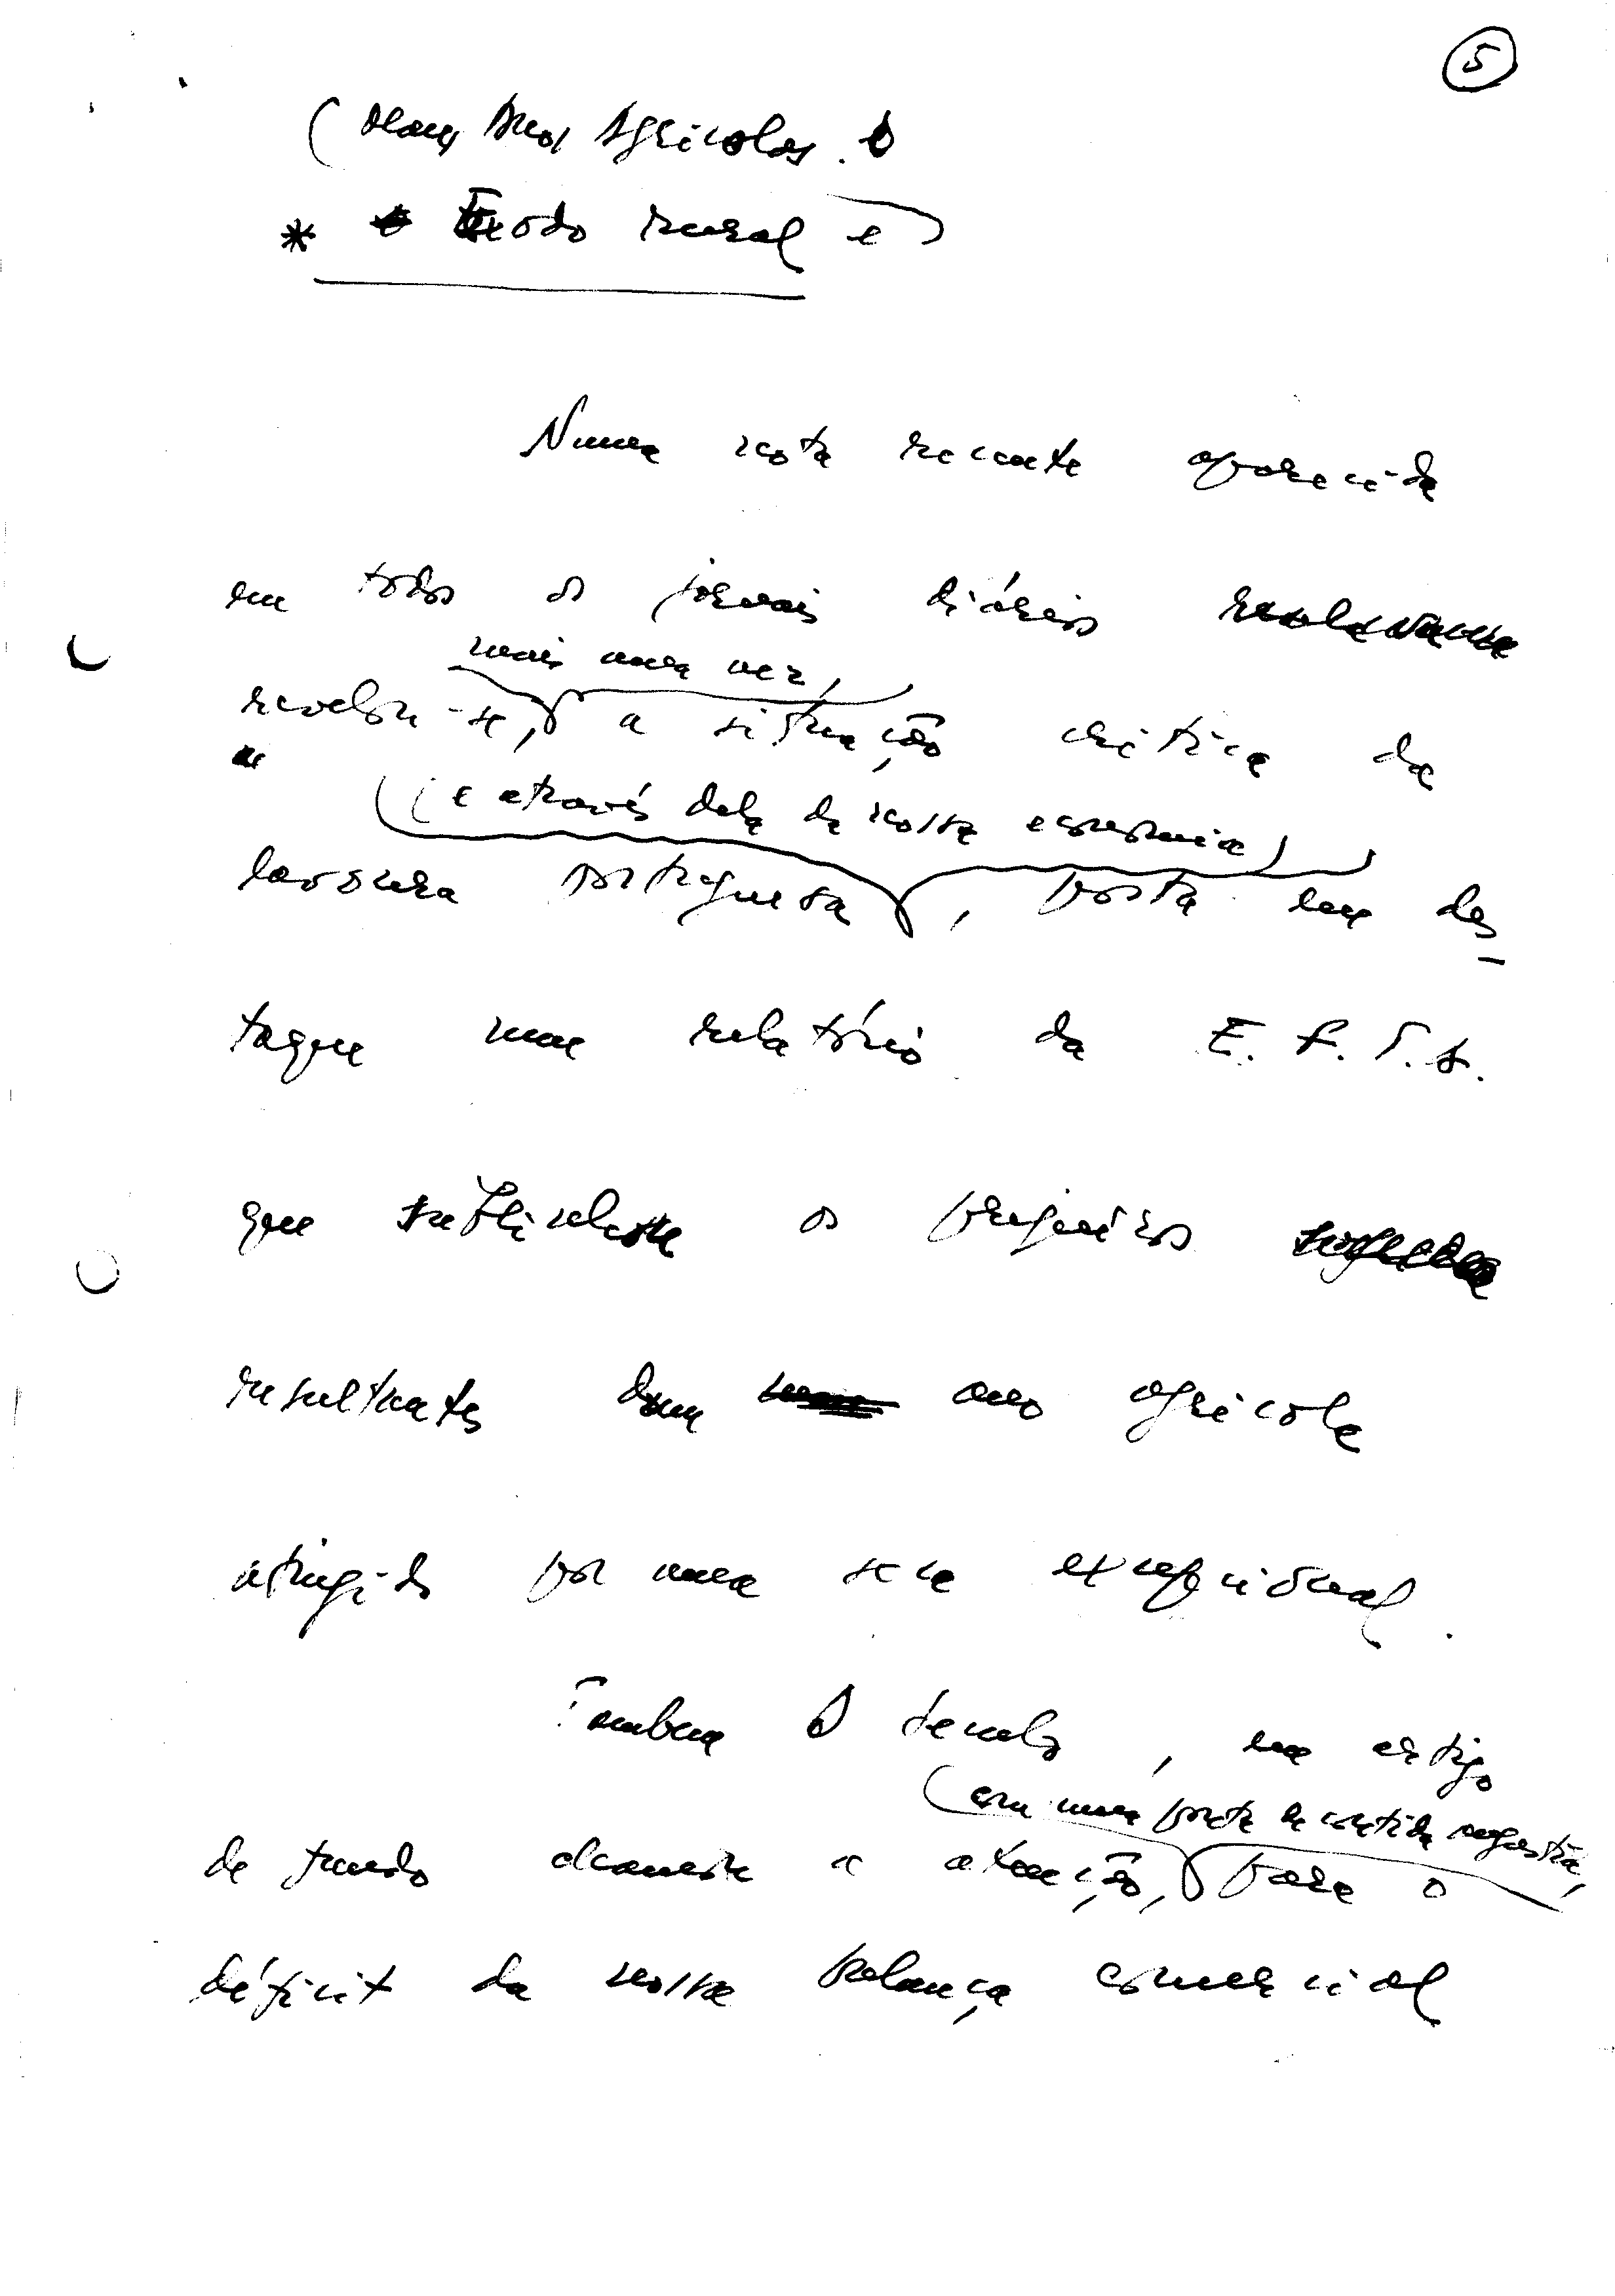 5
( Maus Anos Agrícolas.
* Êxodo rural e )
Numa nota recente aparecida
em todos os jornais diários
mais uma vez,
revelou-se, a situação crítica da
(e através dela da nossa economia)
lavoura portuguesa, posta em des-
taque num relatório da E.F.T.A.
que sublinhava os prejuízos
resultantes dum ano agrícola
atingido por uma seca excepcional.
Também O Século, em artigo
com uma ponta de contida angústia,
de fundo chamava a atenção, para o
déficit da nossa balança comercial